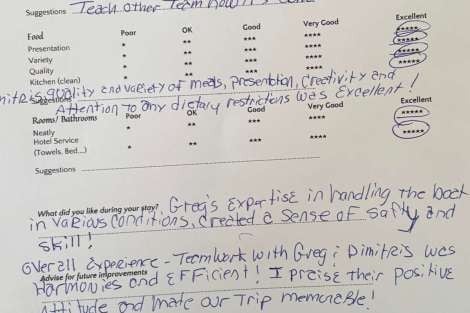 Suggestions Teach other Team how it's done
Food Poor OK Good Very Good Excellent
Presentation * ** *** **** *****
Variety * ** *** **** *****
Quality * ** *** **** *****
Kitchen (clean) * ** *** **** *****
mitris quality and variety of meals, presentation, creativity and
Suggestions Attention to any dietary restrictions was Excellent!
Rooms/ Bathrooms Poor OK Good Very Good Excellent
Neatly * ** *** **** *****
Hotel Service * ** *** **** *****
(Towels, Bed...)
Suggestions
What did you like during your stay? Greg's Expertise in handling the boat
in various conditions, created a sense of safty and
skill!
Overall Experience - Teamwork with Greg & Dimitris was
Advice for future improvements
Harmonies and EFFicient! I praise their positive
Attitude and made our Trip memorable!